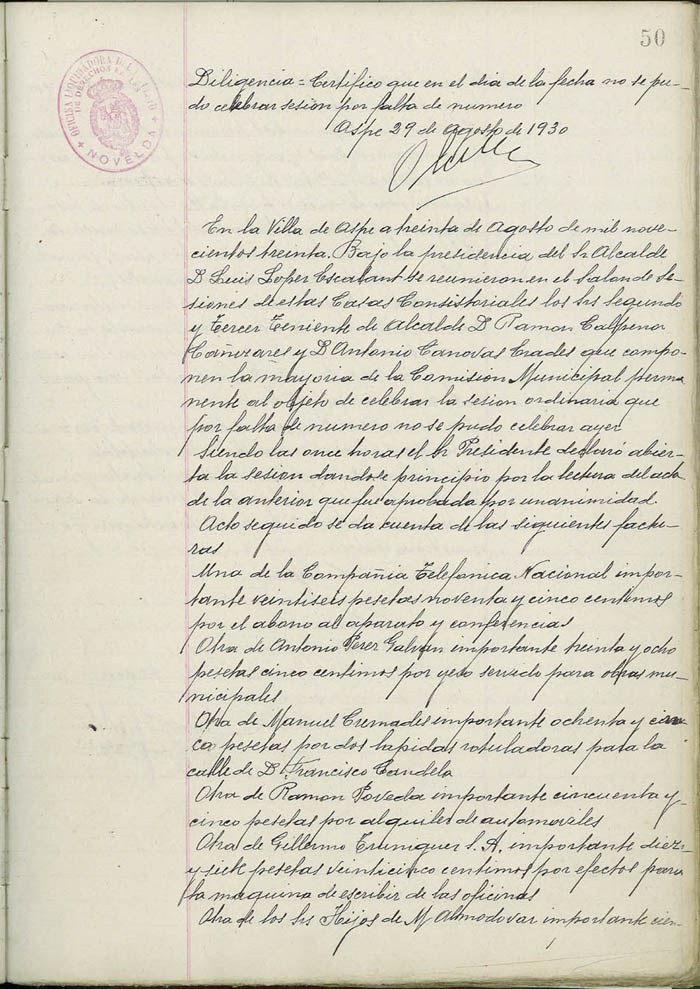 50
OFICINA LIQUIDADORA DEL
DE DERECHOS
NOVELDA
Diligencia = Certifico que en el dia de la fecha no se pu-
do celebrar sesion por falta de numero
Aspe 29 de Agosto de 1930
En la Villa de Aspe a treinta de Agosto de mil nove-
cientos treinta. Bajo la presidencia del Sr Alcalde
D Luis Lopez Escalant se reunieron en el Salon de Se-
siones de estas Casas Consistoriales los Srs Segundo
y Tercer Teniente de Alcalde D Ramon Calpena
Cañizares y D Antonio Canovas Crades que compo-
nen la mayoria de la Comision Municipal perma
nente al objeto de celebrar la sesion ordinaria que
por falta de numero no se pudo celebrar ayer
Siendo las once horas el Sr Presidente declaró abier-
ta la sesion dandose principio por la lectura del acta
de la anterior que fue aprobada por unanimidad.
Acto seguido se da cuenta de las siguientes factu-
ras
Una de la Compañia Telefonica Nacional impor-
tante veintiseis pesetas noventa y cinco centimos
por el abono al aparato y conferencias
Otra de Antonio Perez Galvan importante treinta y ocho
pesetas cinco centimos por yeso servido para obras mu-
nicipales
Otra de Manuel Cremades importante ochenta y cin
co pesetas por dos lapidas rotuladoras para la
calle de D. Francisco Candela
Otra de Ramon Poveda importante cincuenta y
cinco pesetas por alquiler de automoviles
Otra de Gillermo Truniguer S. A. importante diez
y siete pesetas veinticinco centimos por efectos para
la maquina de escribir de las oficinas
Otra de los Srs Hijos de M Almodovar importante cien-